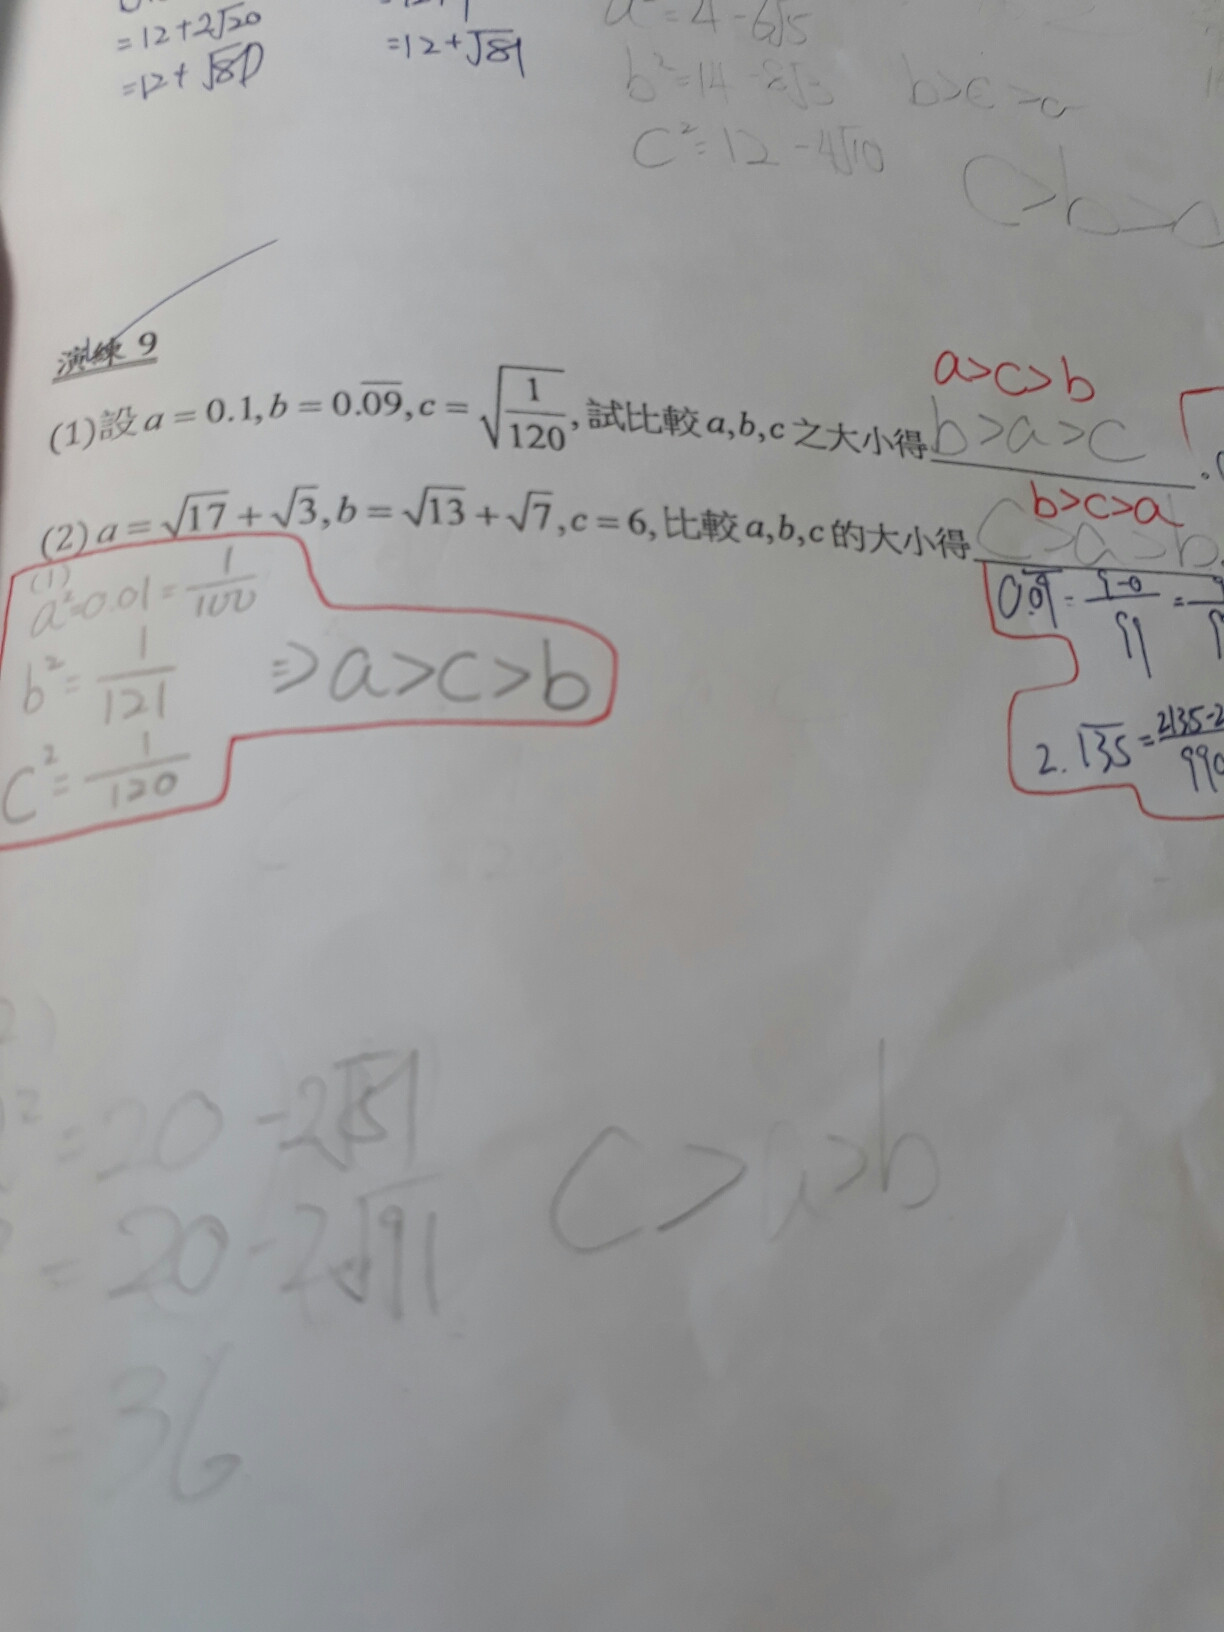 =12+2√20
=12+√80
=12+√81
a²=4-6√5
b²=14-8√3
b>c>a
c²=12-4√10
c>b>a
演練 9
a>c>b
(1)設 a = 0.1, b = 0.\overline{09}, c = √(1/120), 試比較 a,b,c 之大小得 b>a>c
b>c>a
(2) a = √17 + √3, b = √13 + √7, c = 6, 比較 a,b,c 的大小得 c>a>b.
(1)
a²=0.01=1/100
b²=1/121
⇒a>c>b
c²=1/120
0.\overline{09}=(9-0)/99=
2.1\overline{35}=
2)
=20-2√51
c>a>b
=20-2√91
=36